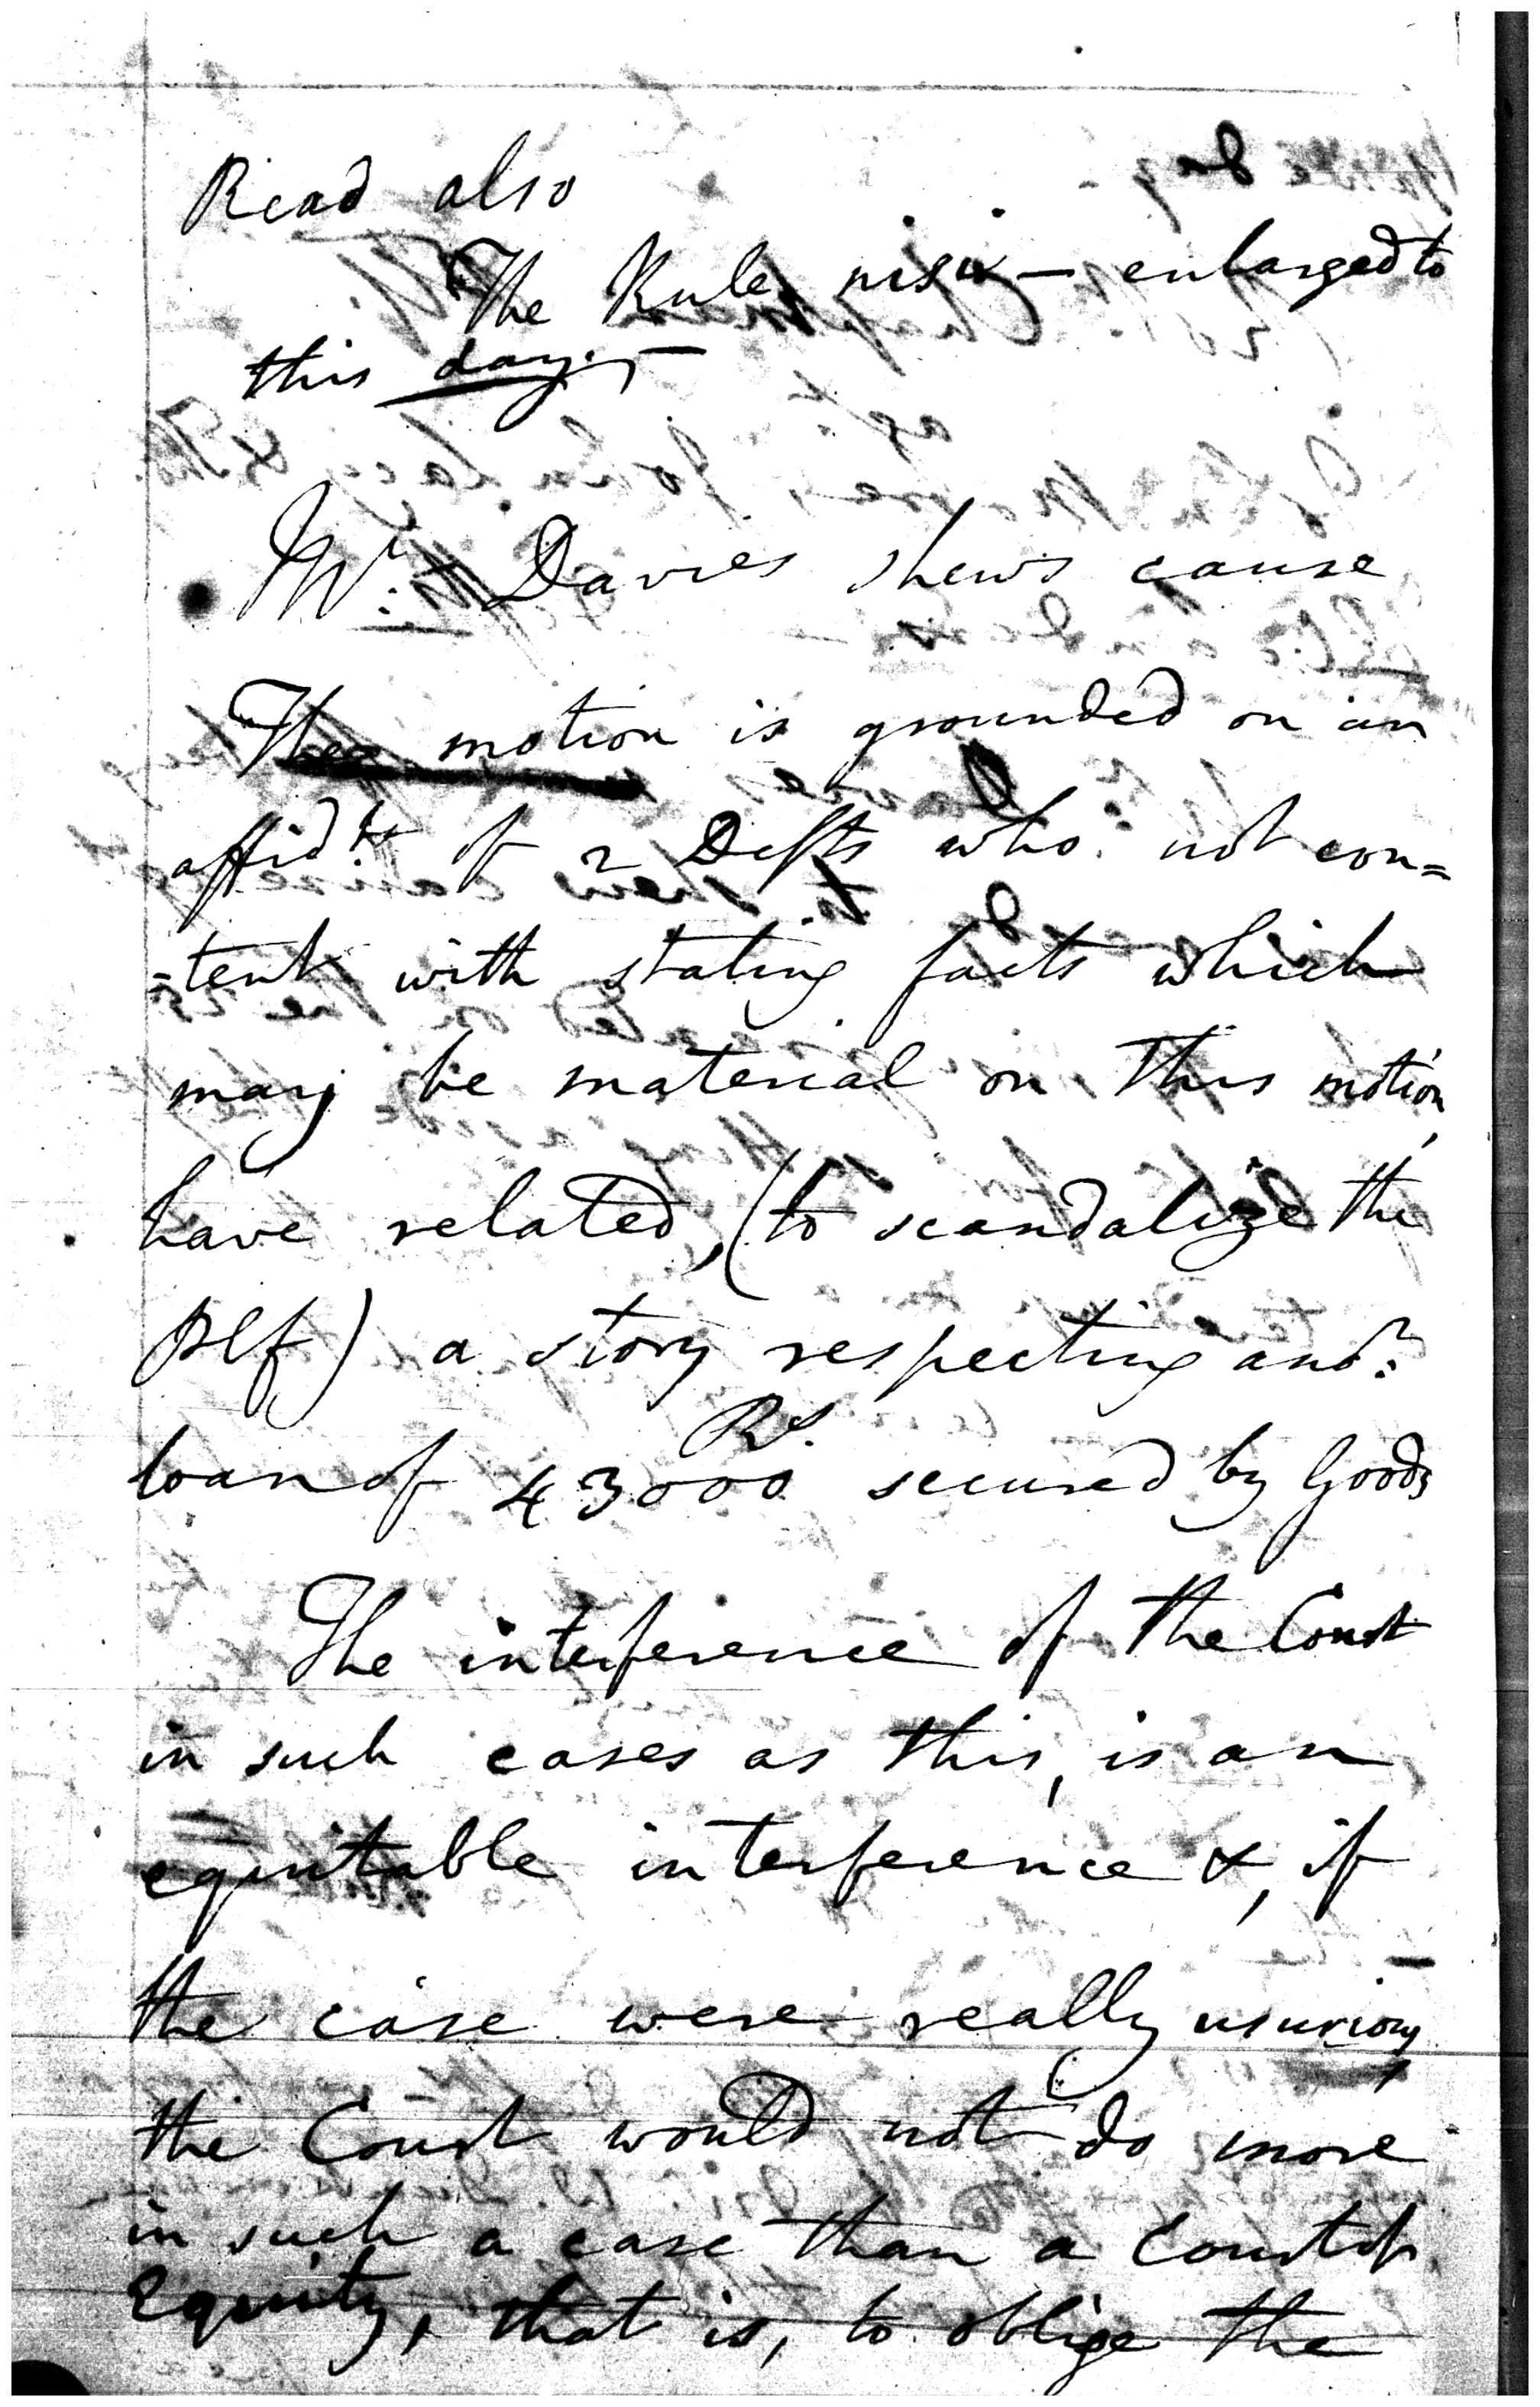 Read also
The Rule nisi — enlarged to
this day. —
Mr. Davies shews cause
The motion is grounded on an
affidts of 2 Defts who not con=
=tent with stating facts which
may be material on this motion,
have related, (to scandalize the
Plf) a story respecting anor.
Rs.
loan of 43000 secured by Goods
The interference of the Court
in such cases as this, is an
equitable interference &, if
the case were really usurious,
the Court would not do more
in such a case than a Court of
Equity, that is, to oblige the